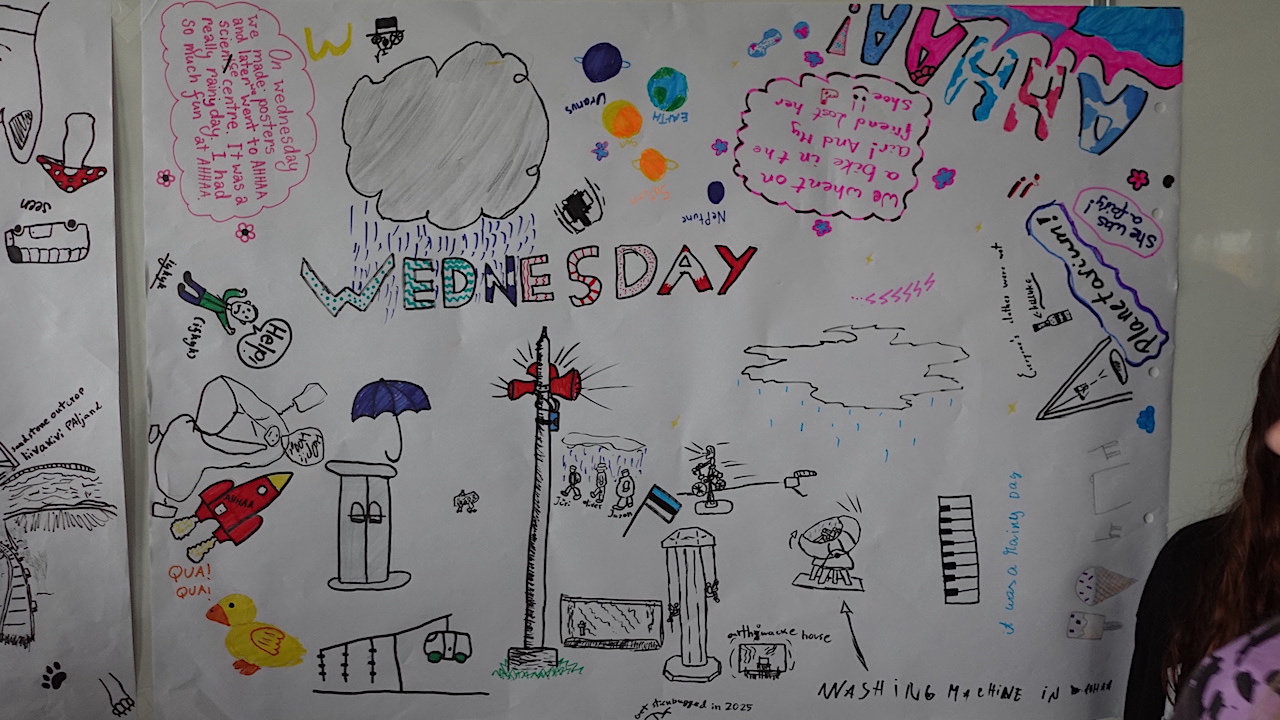 On wednesday
we made posters
and later we went to AHHAA
science centre. It was a
really rainy day, I had
so much fun at AHHAA.
W
AHHAA!
Uranus
EARTH
Sun
Saturn
NePtune
We whent on
a bike in the
air! And My
friend lost her
shoe!!
she was
a fairy!
Planetarium!
WEDNESDAY
Help!
ssssss...
Everyone's clothes were wet
seen
sandstone outcrop
liivakivi PAljand
AHHAA
QUA!
QUA!
Jüri
Juson
it was a rainy DAY
earthquacke house
WASHING MACHINE IN AHHAA
get stickbugged in 2025